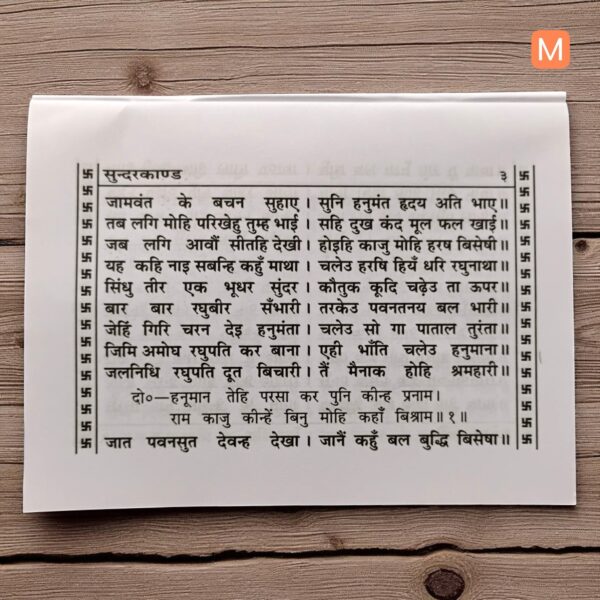 M
सुन्दरकाण्ड ३
जामवंत के बचन सुहाए। सुनि हनुमंत हृदय अति भाए॥
तब लगि मोहि परिखेहु तुम्ह भाई। सहि दुख कंद मूल फल खाई॥
जब लगि आवौं सीतहि देखी। होइहि काजु मोहि हरष बिसेषी॥
यह कहि नाइ सबन्हि कहुँ माथा। चलेउ हरषि हियँ धरि रघुनाथा॥
सिंधु तीर एक भूधर सुंदर। कौतुक कूदि चढ़ेउ ता ऊपर॥
बार बार रघुबीर सँभारी। तरकेउ पवनतनय बल भारी॥
जेहिं गिरि चरन देइ हनुमंता। चलेउ सो गा पाताल तुरंता॥
जिमि अमोघ रघुपति कर बाना। एही भाँति चलेउ हनुमाना॥
जलनिधि रघुपति दूत बिचारी। तैं मैनाक होहि श्रमहारी॥
दो०—हनूमान तेहि परसा कर पुनि कीन्ह प्रनाम।
राम काजु कीन्हें बिनु मोहि कहाँ बिश्राम॥१॥
जात पवनसुत देवन्ह देखा। जानैं कहुँ बल बुद्धि बिसेषा॥